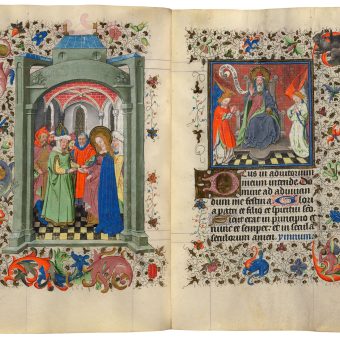 Deus in adiutorium
meum intende Do
mine ad adiuuan
dum me festina Glo
ria patri et filio et spiritui sco
Sicut erat in principio et
nunc et semper et in secula
seculorum amen. ympnum